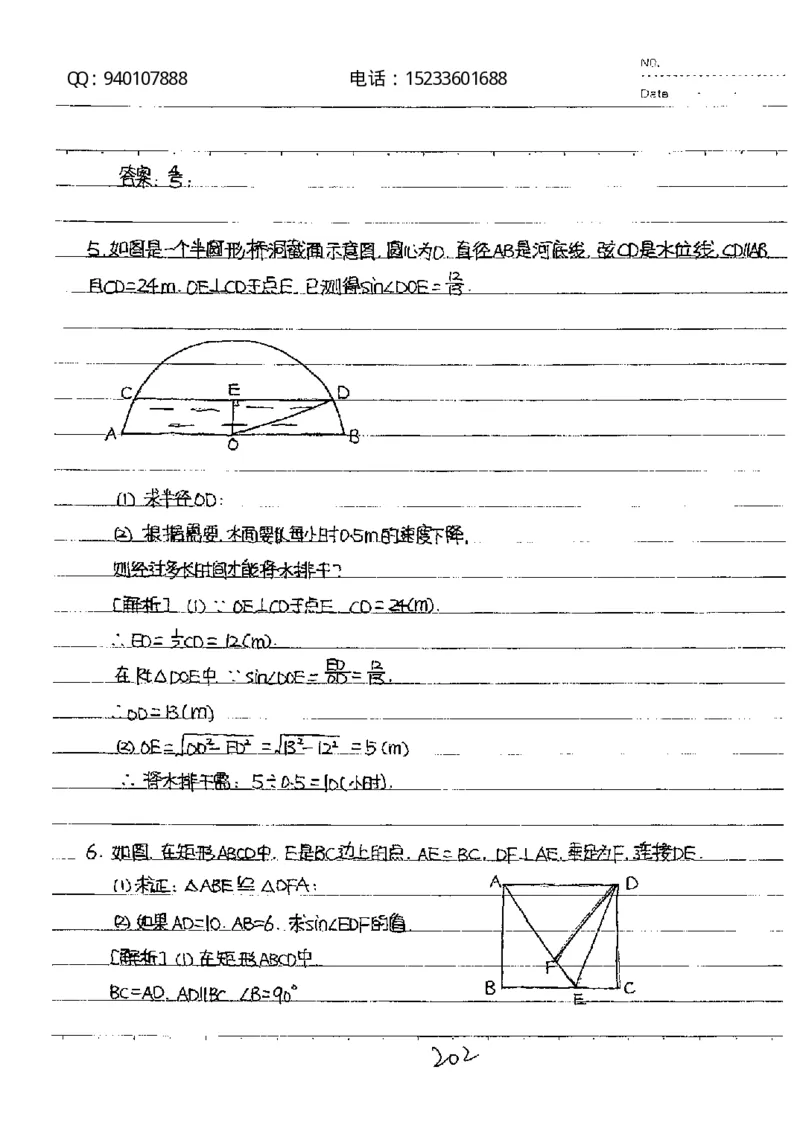 QQ：940107888 电话：15233601688 NO.
Date
答案：4/5.
5.如图是一个半圆形桥洞截面示意图.圆心为O.直径AB是河底线.弦CD是水位线.CD∥AB.
且CD=24m.OE⊥CD于点E.已测得sin∠DOE=12/13.
C E D
A O B
(1) 求半径OD;
(2) 根据需要.水面要以每小时0.5m的速度下降.
则经过多长时间才能将水排干?
[解析] (1) ∵OE⊥CD于点E. CD=24(m).
∴ED=1/2CD=12(m).
在Rt△DOE中.∵sin∠DOE=ED/OD=12/13.
∴OD=13(m)
(2) OE=√OD²-ED² =√13²-12² =5(m)
∴将水排干需：5÷0.5=10(小时).
6. 如图.在矩形ABCD中.E是BC边上的点.AE=BC.DF⊥AE.垂足为F.连接DE.
(1)求证：△ABE≌△DFA;
(2)如果AD=10.AB=6.求sin∠EDF的值.
[解析] (1)在矩形ABCD中
BC=AD.AD∥BC.∠B=90°
A D
F
B E C
202